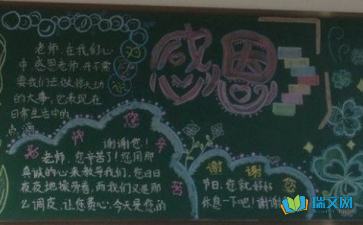 感恩
老师,在我们心
中感恩老师,并不需
要我们去做惊天动
的大事,它表现在
日常生活中的
点
老师您辛苦
谢谢您!
老师,您辛苦了!您用那
真诚的心来教导我们,您日日
夜夜地操劳着,而我们又是那
么调皮,让您费心,今天是您的
谢谢
节日,您就好好
休息一下吧!谢谢
瑞文网